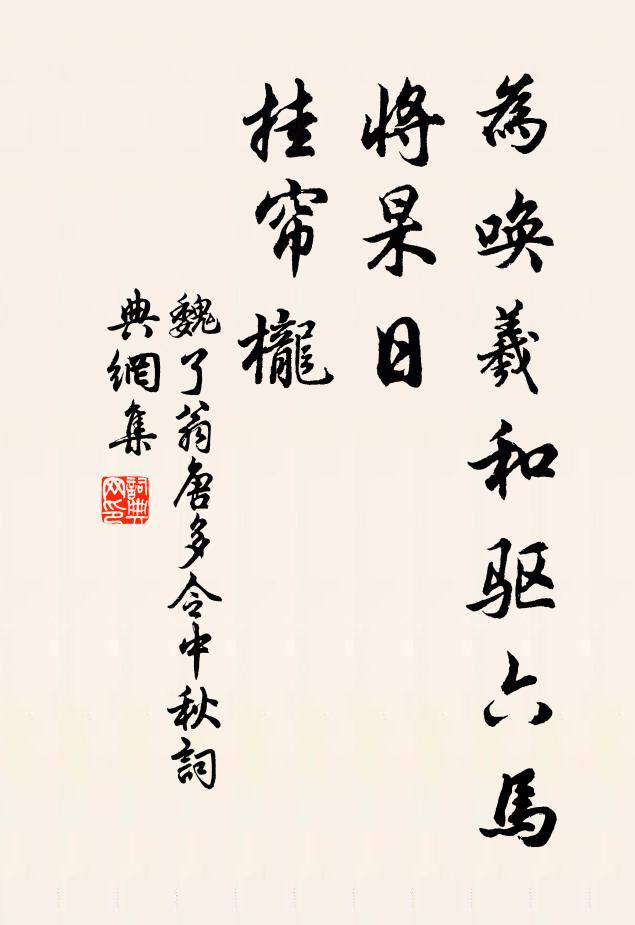 為唤羲和驱六馬
將杲日
挂帘櫳
魏了翁唐多令中秋詞
典網集
詞典网印